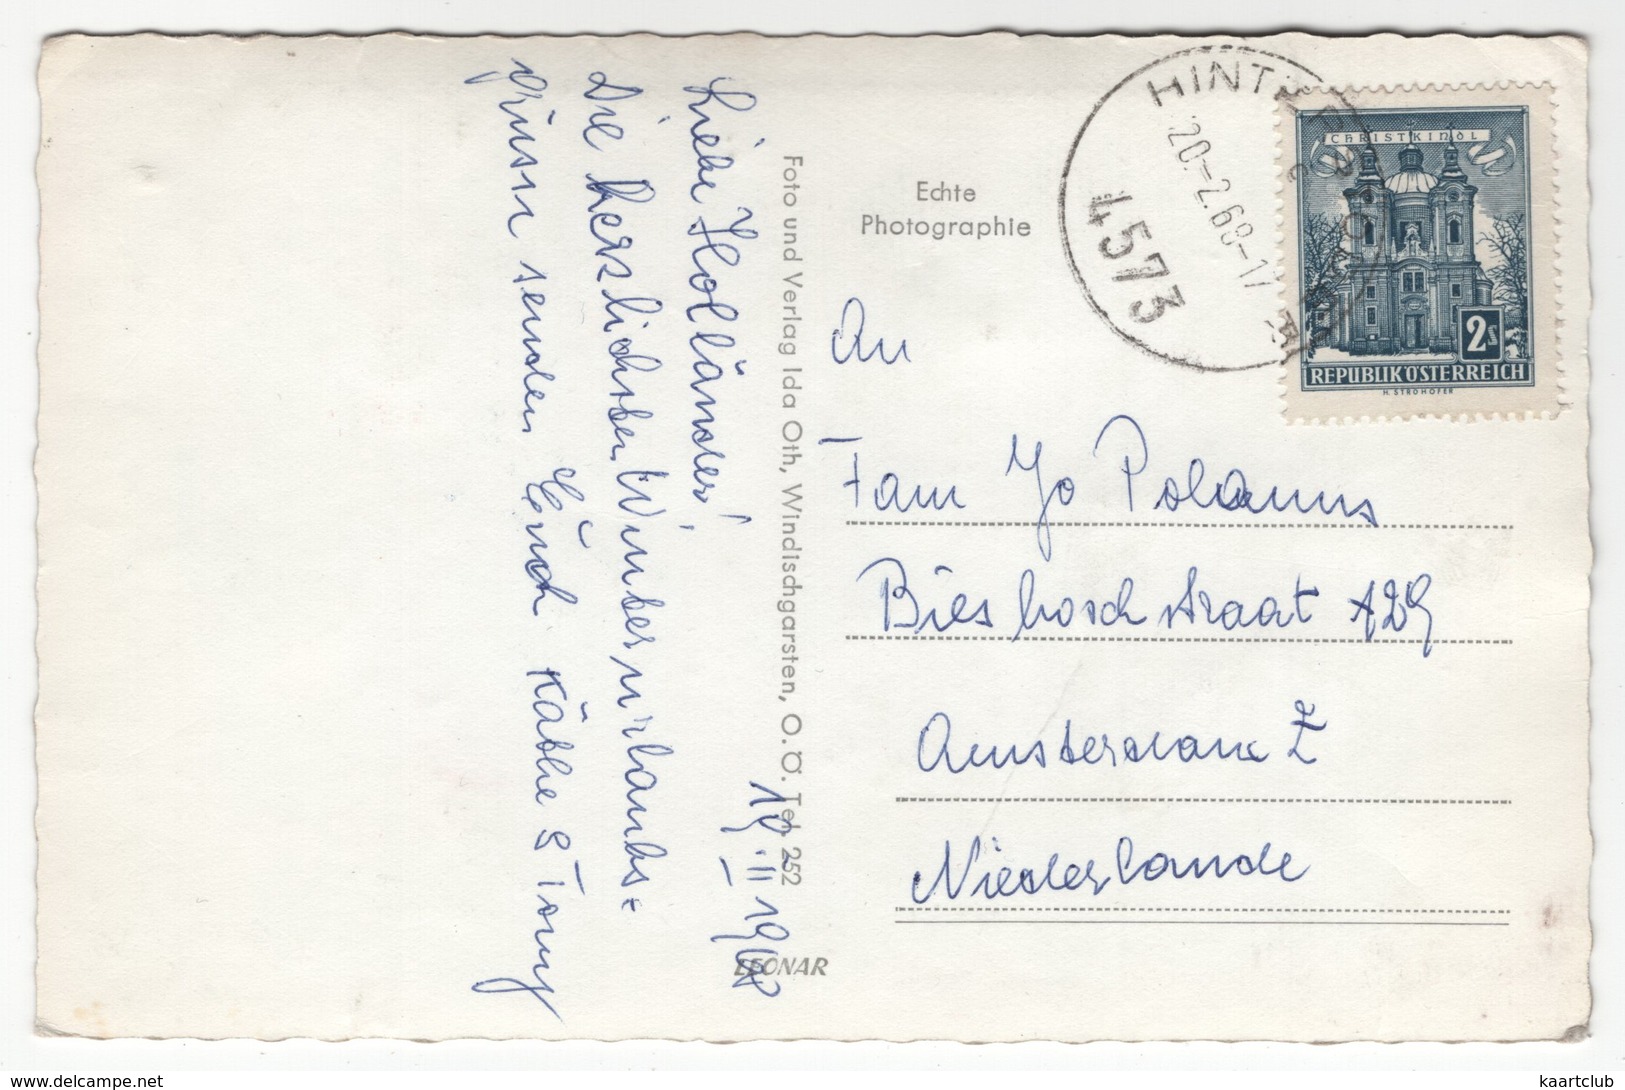 19.II 1968
Liebe Holländer!
Die herzlichsten Winterurlaubs=
grüsse senden Euch Käthe & Tony
Foto und Verlag Ida Oth, Windischgarsten, O.Ö. Tel. 252
LEONAR
Echte
Photographie
4573
20.-2.68-17
CHRISTKINDL
2s
REPUBLIK ÖSTERREICH
H. STROHOFER
An
Fam Jo Polanus
Biesboschstraat 129
Amsterdam Z
Niederlande
kaartclub
www.delcampe.net